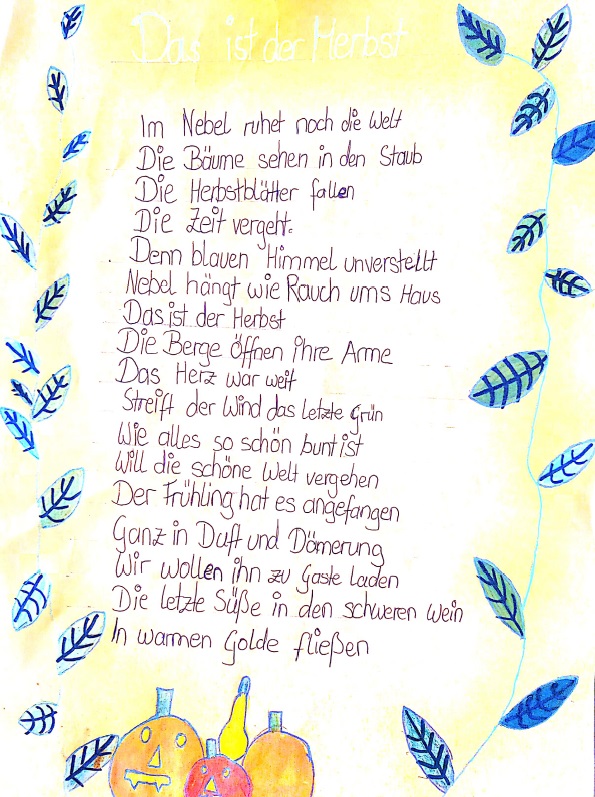 Das ist der Herbst
Im Nebel ruhet noch die Welt
Die Bäume sehen in den Staub
Die Herbstblätter fallen
Die Zeit vergeht.
Denn blauen Himmel unverstellt
Nebel hängt wie Rauch ums Haus
Das ist der Herbst
Die Berge öffnen ihre Arme
Das Herz war weit
Streift der Wind das letzte Grün
Wie alles so schön bunt ist
Will die schöne Welt vergehen
Der Frühling hat es angefangen
Ganz in Duft und Dämerung
Wir wollen ihn zu Gaste laden
Die letzte Süße in den schweren Wein
In warmen Golde fließen